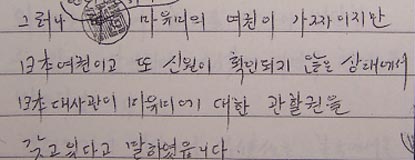 그러나 마유미의 여권이 가짜이지만
日本여권이고 또 신원이 확인되지 않은 상태에서
日本대사관이 마유미에 대한 관할권을
갖고 있다고 말하였읍니다.